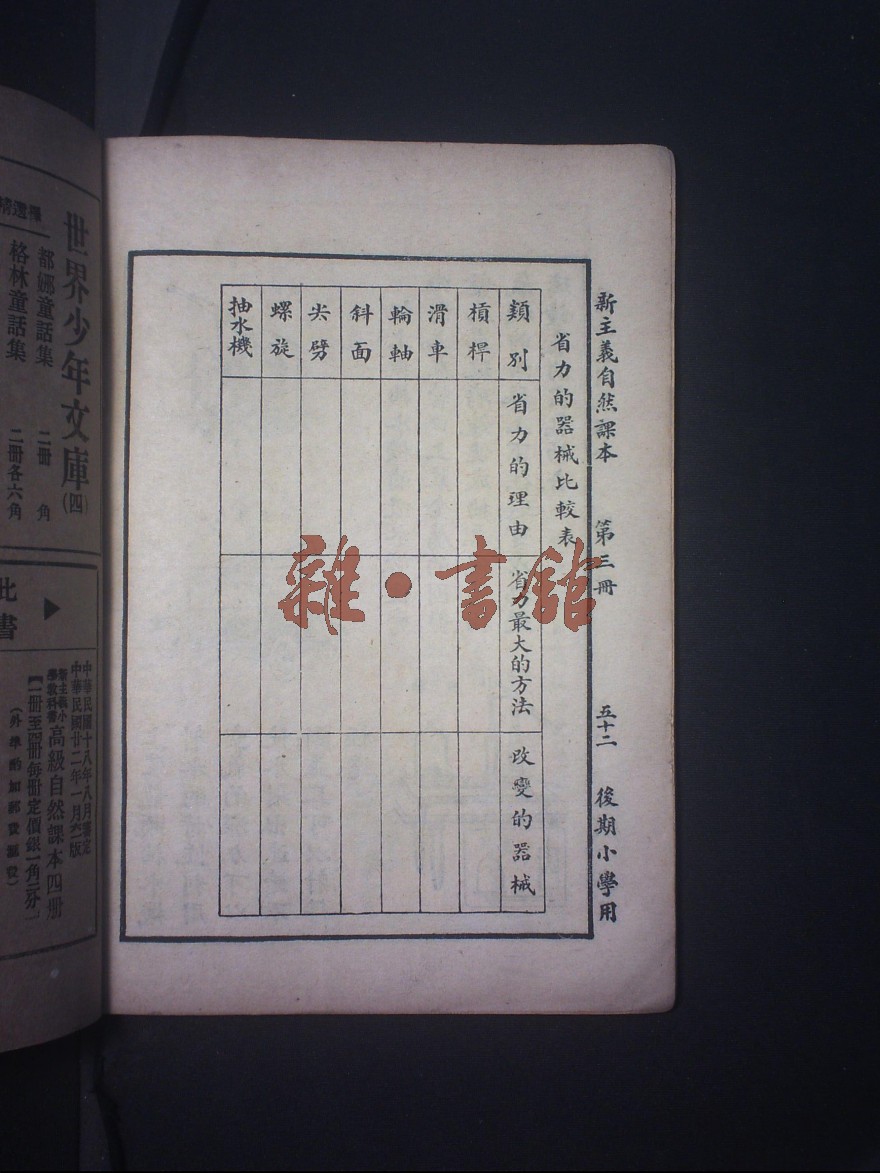 新主義自然課本 第三冊 五十二 後期小學用
省力的器械比較表
類別 省力的理由 省力最大的方法 改變的器械
槓桿
滑車
輪軸
斜面
尖劈
螺旋
抽水機
雜·書館
世界少年文庫(四)
都娜童話集 二冊 角
格林童話集 二冊各六角
此書
中華民國十八年八月
中華民國廿二年一月 版
新主義小學教科書 高級自然課本四册
一冊至四冊每冊定價銀一角二分